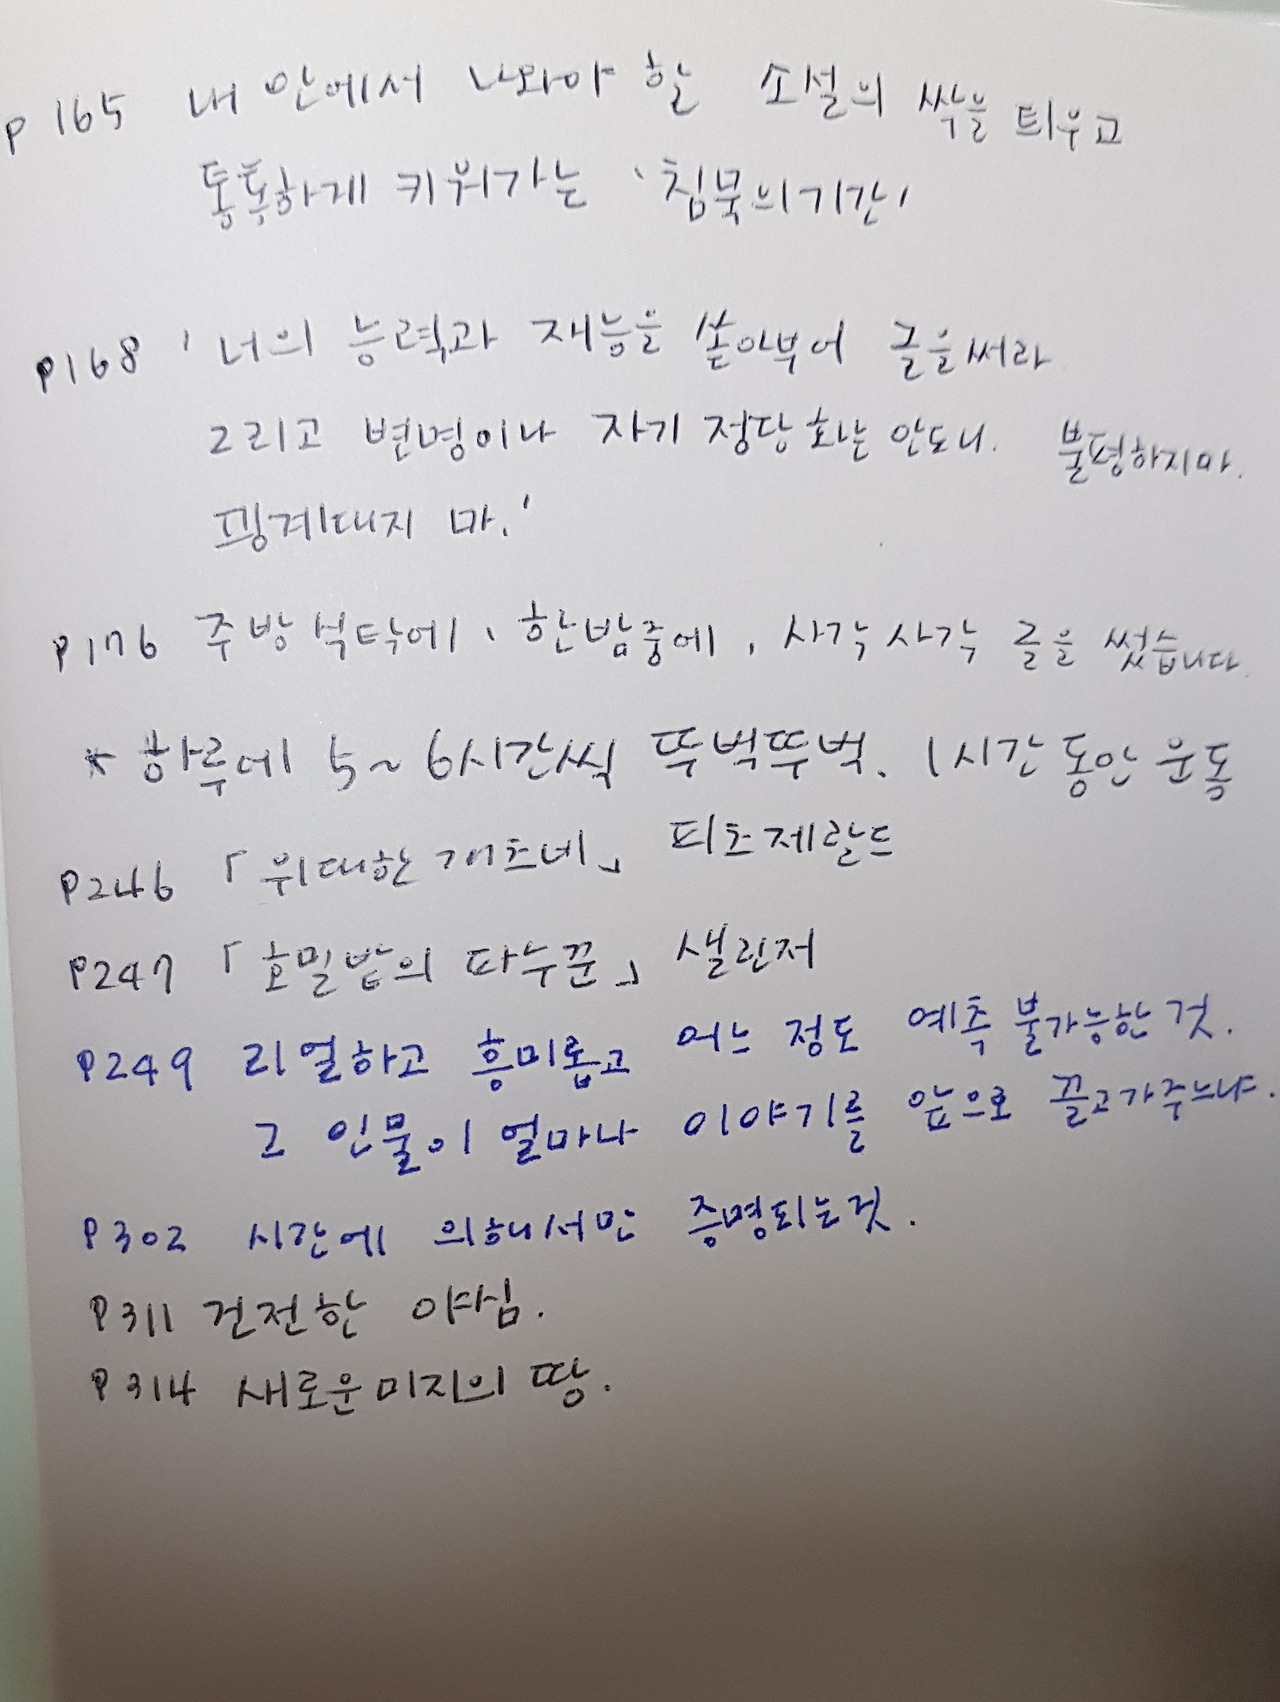 P 165 내 안에서 나와야 할 소설의 싹을 틔우고
통통하게 키워가는 '침묵의기간'
P168 '너의 능력과 재능을 쏟아부어 글을써라
그리고 변명이나 자기 정당화는 안돼. 불평하지마.
핑계대지 마.'
P176 주방식탁에, 한밤중에, 사각사각 글을 썼습니다.
* 하루에 5~6시간씩 뚜벅뚜벅. 1시간 동안 운동
P246 「위대한개츠비」 피츠제랄드
P247 「호밀밭의 파수꾼」 샐린저
P249 리얼하고 흥미롭고 어느 정도 예측 불가능한 것.
그 인물이 얼마나 이야기를 앞으로 끌고가주느냐.
P302 시간에 의해서만 증명되는것.
P311 건전한 야심.
P314 새로운미지의 땅.